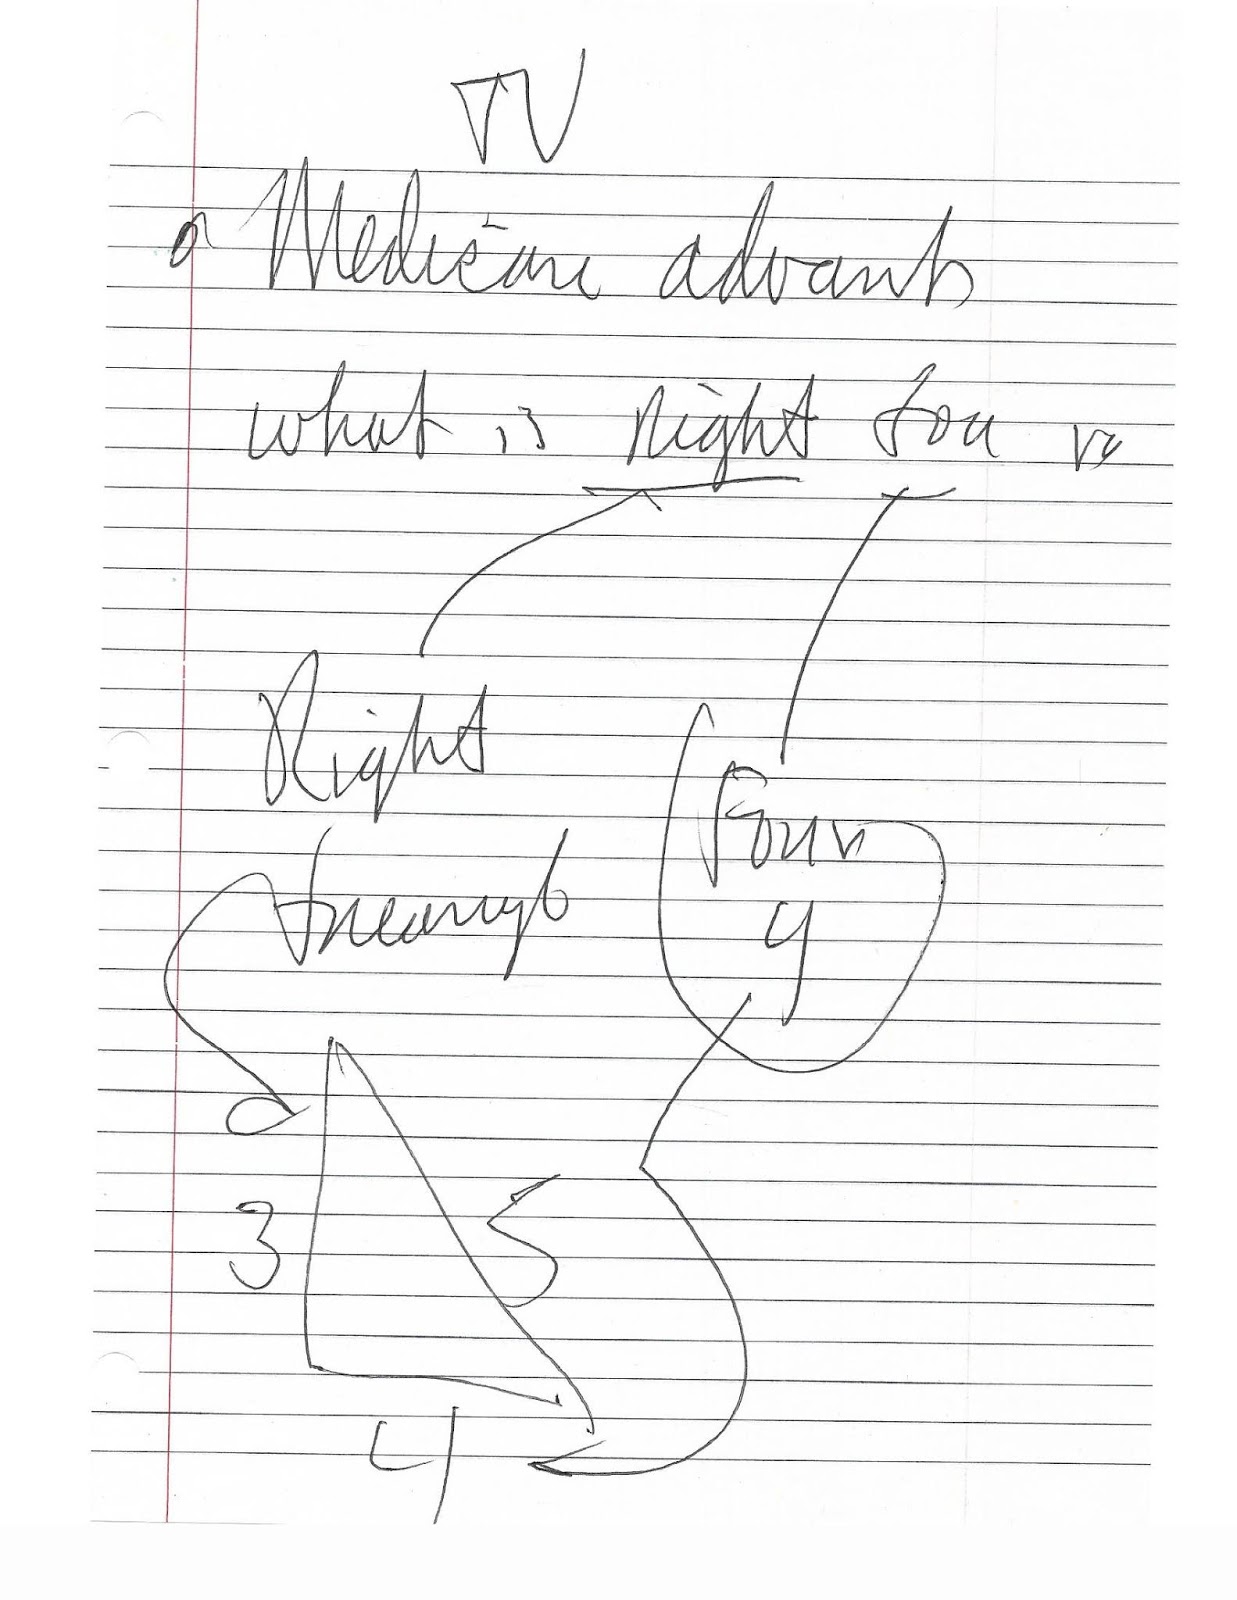 TV
a Medicare advant
what is right for vs
Right
four
4
triangle
3
5
4